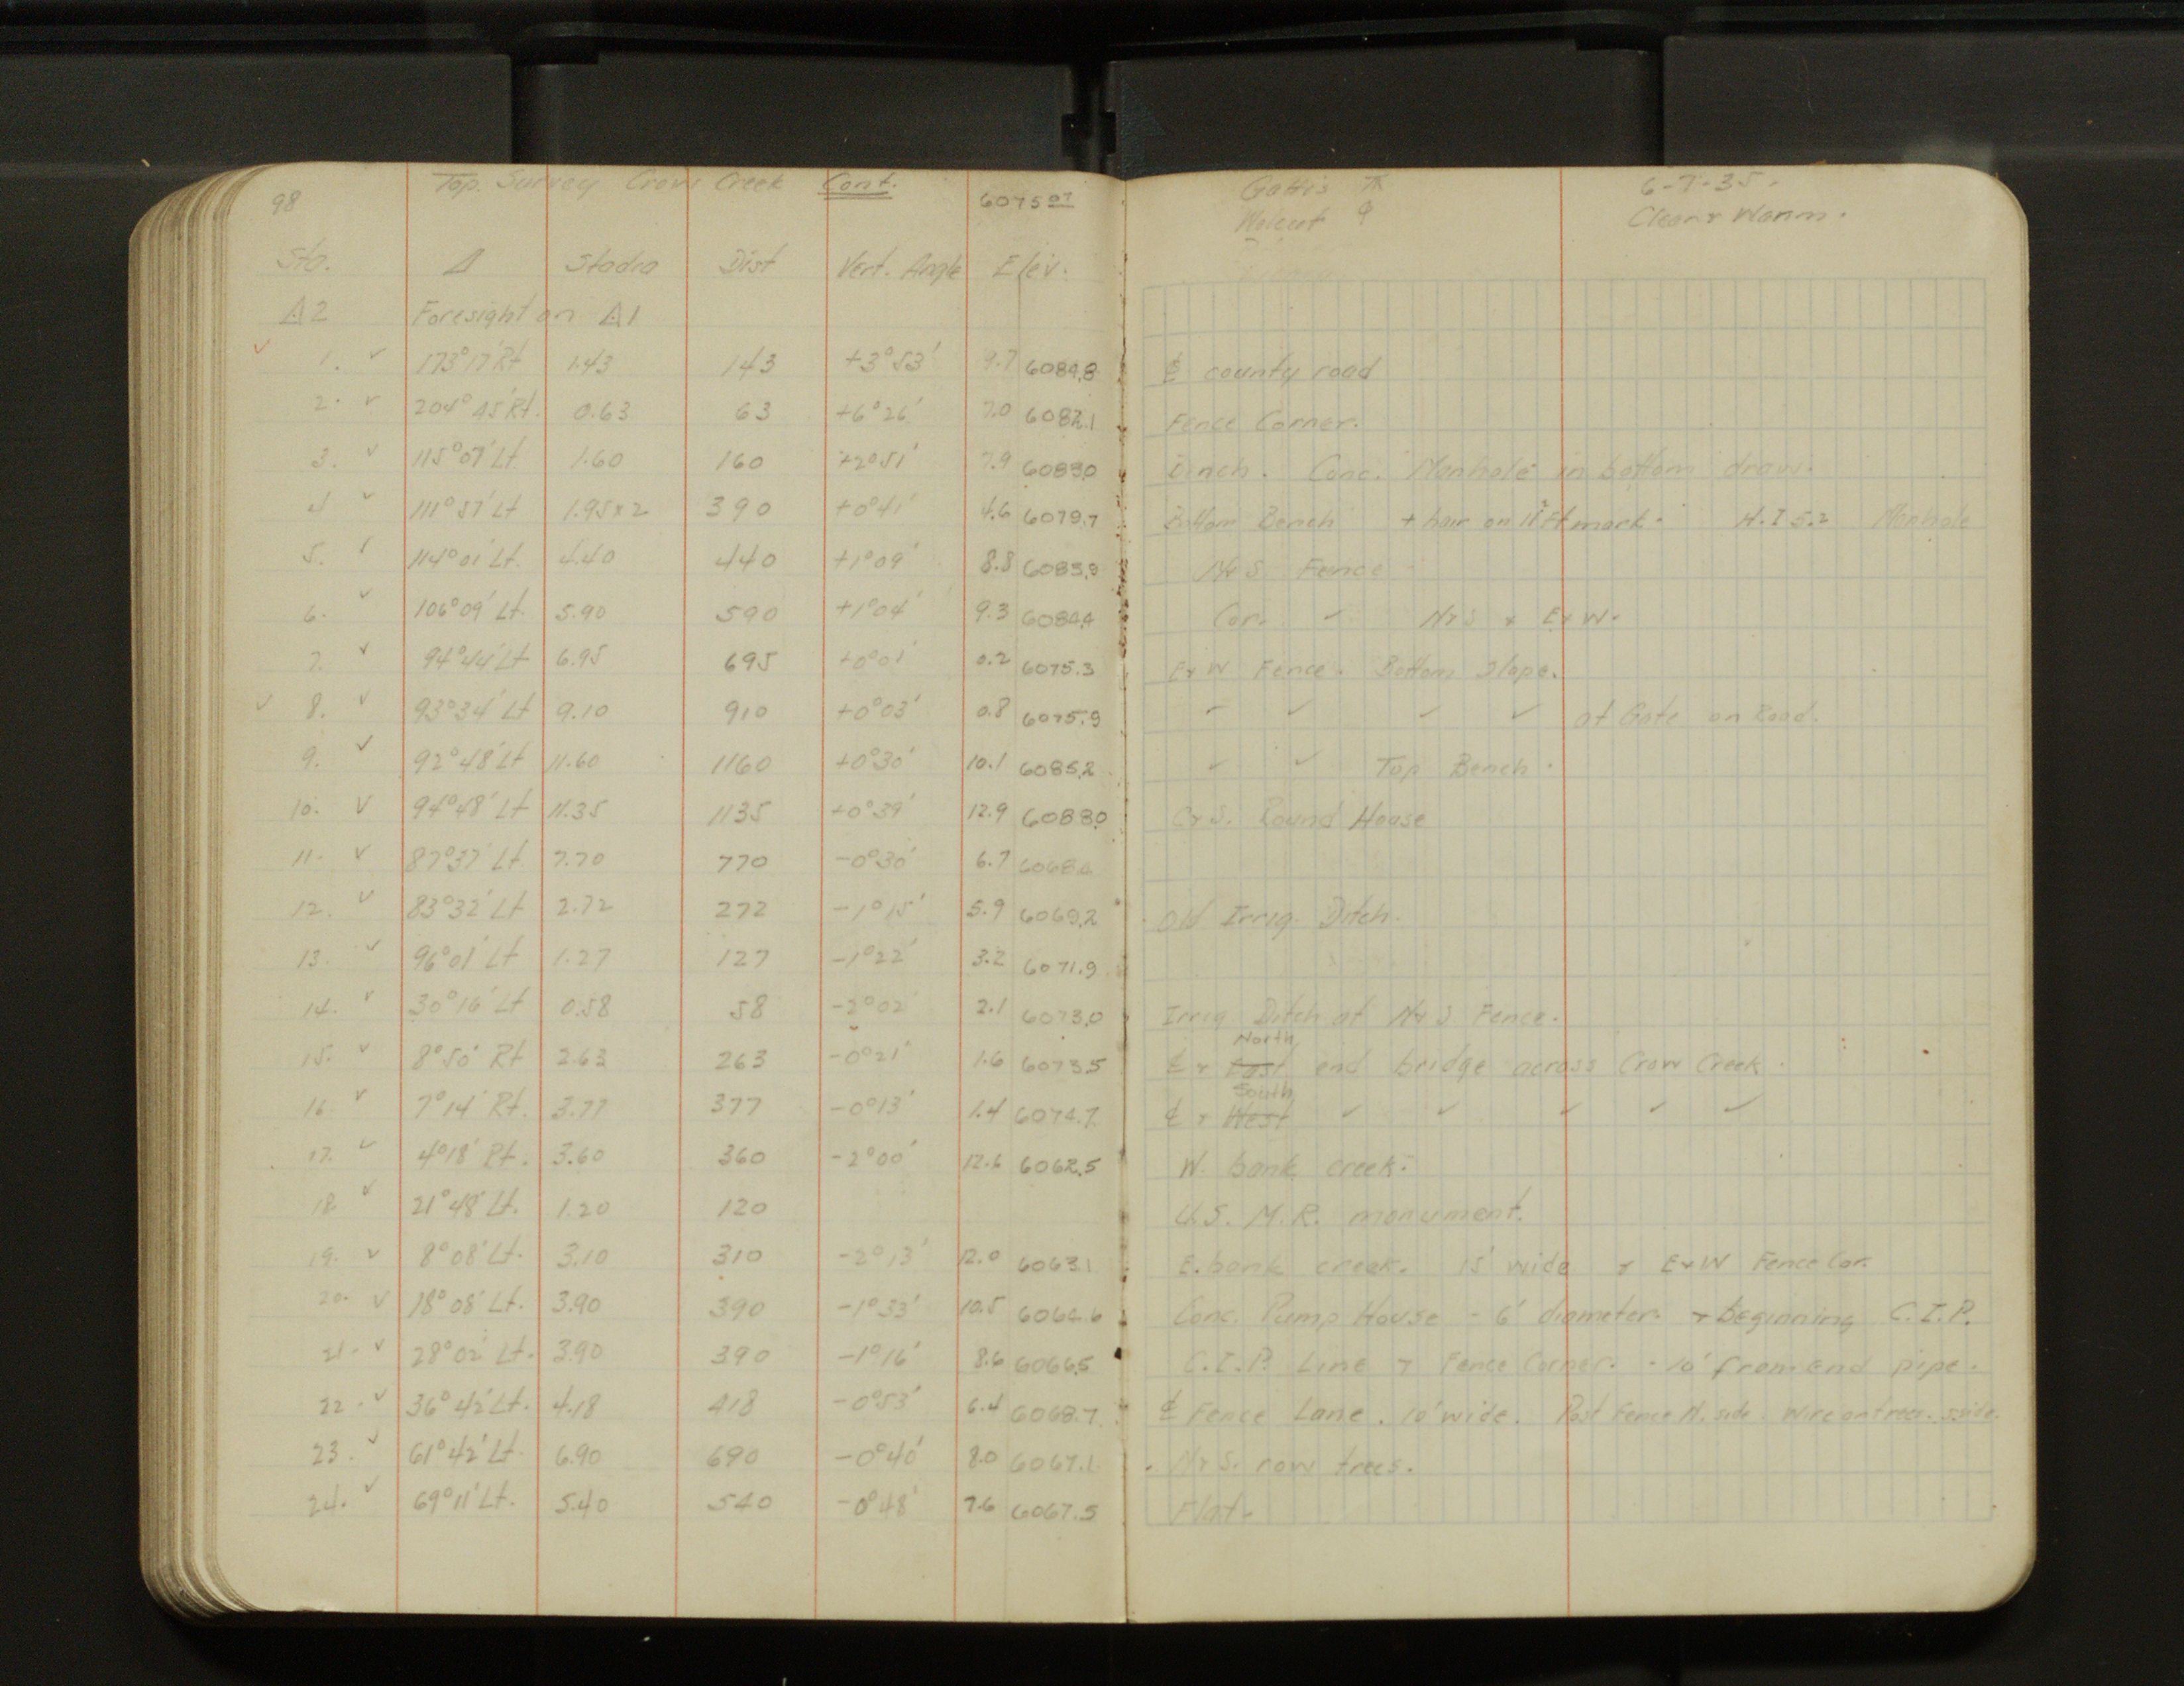 98 Top. Survey Crow Creek Cont. 6075.07
Sta. Δ Stadia Dist Vert. Angle Elev.
Δ2 Foresight on Δ1
1. ✓ 173°17' Rt 1.43 143 +3°53' 9.7 6084.8
2. ✓ 204°45' Rt. 0.63 63 +6°26' 7.0 6082.1
3. ✓ 115°07' Lt 1.60 160 +2°51' 7.9 6083.0
4 ✓ 111°57' Lt 1.95x2 390 +0°41' 4.6 6079.7
5. ✓ 114°01' Lt. 4.40 440 +1°09' 8.8 6083.9
6. ✓ 106°09' Lt. 5.90 590 +1°04' 9.3 6084.4
7. ✓ 94°44' Lt 6.95 695 +0°01' 0.2 6075.3
✓ 8. ✓ 93°34' Lt 9.10 910 +0°03' 0.8 6075.9
9. ✓ 92°48' Lt 11.60 1160 +0°30' 10.1 6085.2
10. ✓ 94°48' Lt 11.35 1135 +0°39' 12.9 6088.0
11. ✓ 87°37' Lt 7.70 770 -0°30' 6.7 6068.4
12. ✓ 83°32' Lt 2.72 272 -1°15' 5.9 6069.2
13. ✓ 96°01' Lt 1.27 127 -1°22' 3.2 6071.9
14. ✓ 30°16' Lt 0.58 58 -2°02' 2.1 6073.0
15. ✓ 8°50' Rt 2.63 263 -0°21' 1.6 6073.5
16 ✓ 7°14' Rt. 3.77 377 -0°13' 1.4 6074.7
17. ✓ 4°18' Rt. 3.60 360 -2°00' 12.6 6062.5
18 ✓ 21°48' Lt. 1.20 120
19. ✓ 8°08' Lt. 3.10 310 -2°13' 12.0 6063.1
20. ✓ 18°08' Lt. 3.90 390 -1°33' 10.5 6064.6
21. ✓ 28°02' Lt. 3.90 390 -1°16' 8.6 6066.5
22. ✓ 36°42' Lt. 4.18 418 -0°53' 6.4 6068.7
23. ✓ 61°42' Lt. 6.90 690 -0°40' 8.0 6067.1
24. ✓ 69°11' Lt. 5.40 540 -0°48' 7.6 6067.5
Gattis ⊼ 6-7-35.
φ Clear & Warm.
℄ county road
Fence Corner.
Conc. Manhole in bottom draw.
Bottom Bench + hair on ft mark. H.I 5.2 Manhole
N+S Fence
Cor. ✓ N+S + E+W.
E+W Fence. Bottom Slope.
✓ ✓ ✓ ✓ at Gate on Road.
✓ ✓ Top Bench.
C+S. Round House
Old Irrig. Ditch.
Irrig Ditch at N+S Fence.
North
℄ + East end bridge across Crow Creek.
South
℄ + West ✓ ✓ ✓ ✓ ✓
W. bank creek.
U.S. M.R. monument.
E. bank creek. 15' wide + E+W Fence Cor.
Conc. Pump House - 6' diameter. + beginning C.I.P.
C.I.P. Line + Fence Corner. - 10' from end pipe.
℄ Fence Lane. 10' wide. Post Fence N. side. Wire on trees. S side.
N+S. row trees.
Flat.